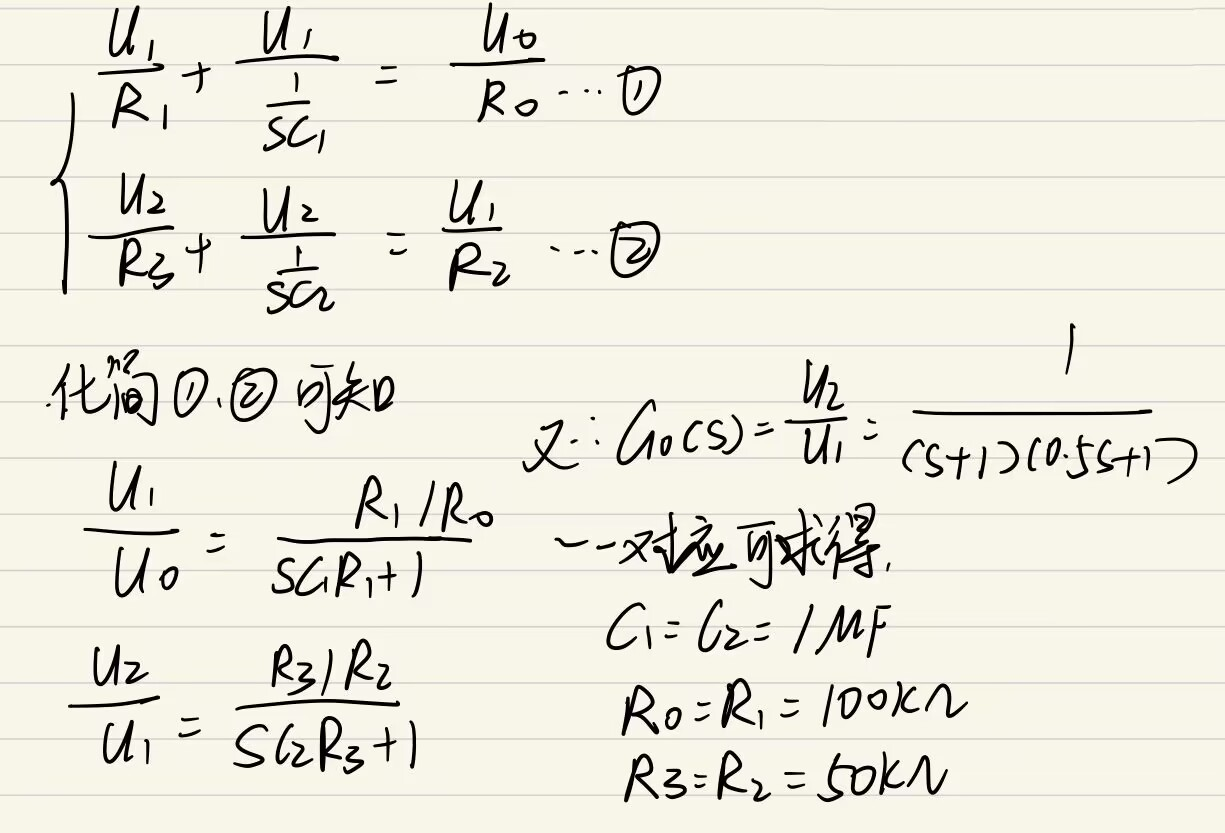 U₁/R₁ + U₁/(1/SC₁) = U₀/R₀ ... ①
U₂/R₃ + U₂/(1/SC₂) = U₁/R₂ ... ②
化简①、②可知
U₁/U₀ = (R₁/R₀)/(SC₁R₁+1)
U₂/U₁ = (R₃/R₂)/(SC₂R₃+1)
又∵G₀(S) = U₂/U₁ = 1/((S+1)(0.5S+1))
一一对应可求得,
C₁=C₂=1MF
R₀=R₁=100KΩ
R₃=R₂=50KΩ